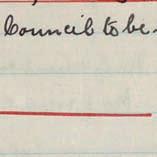 Council to be